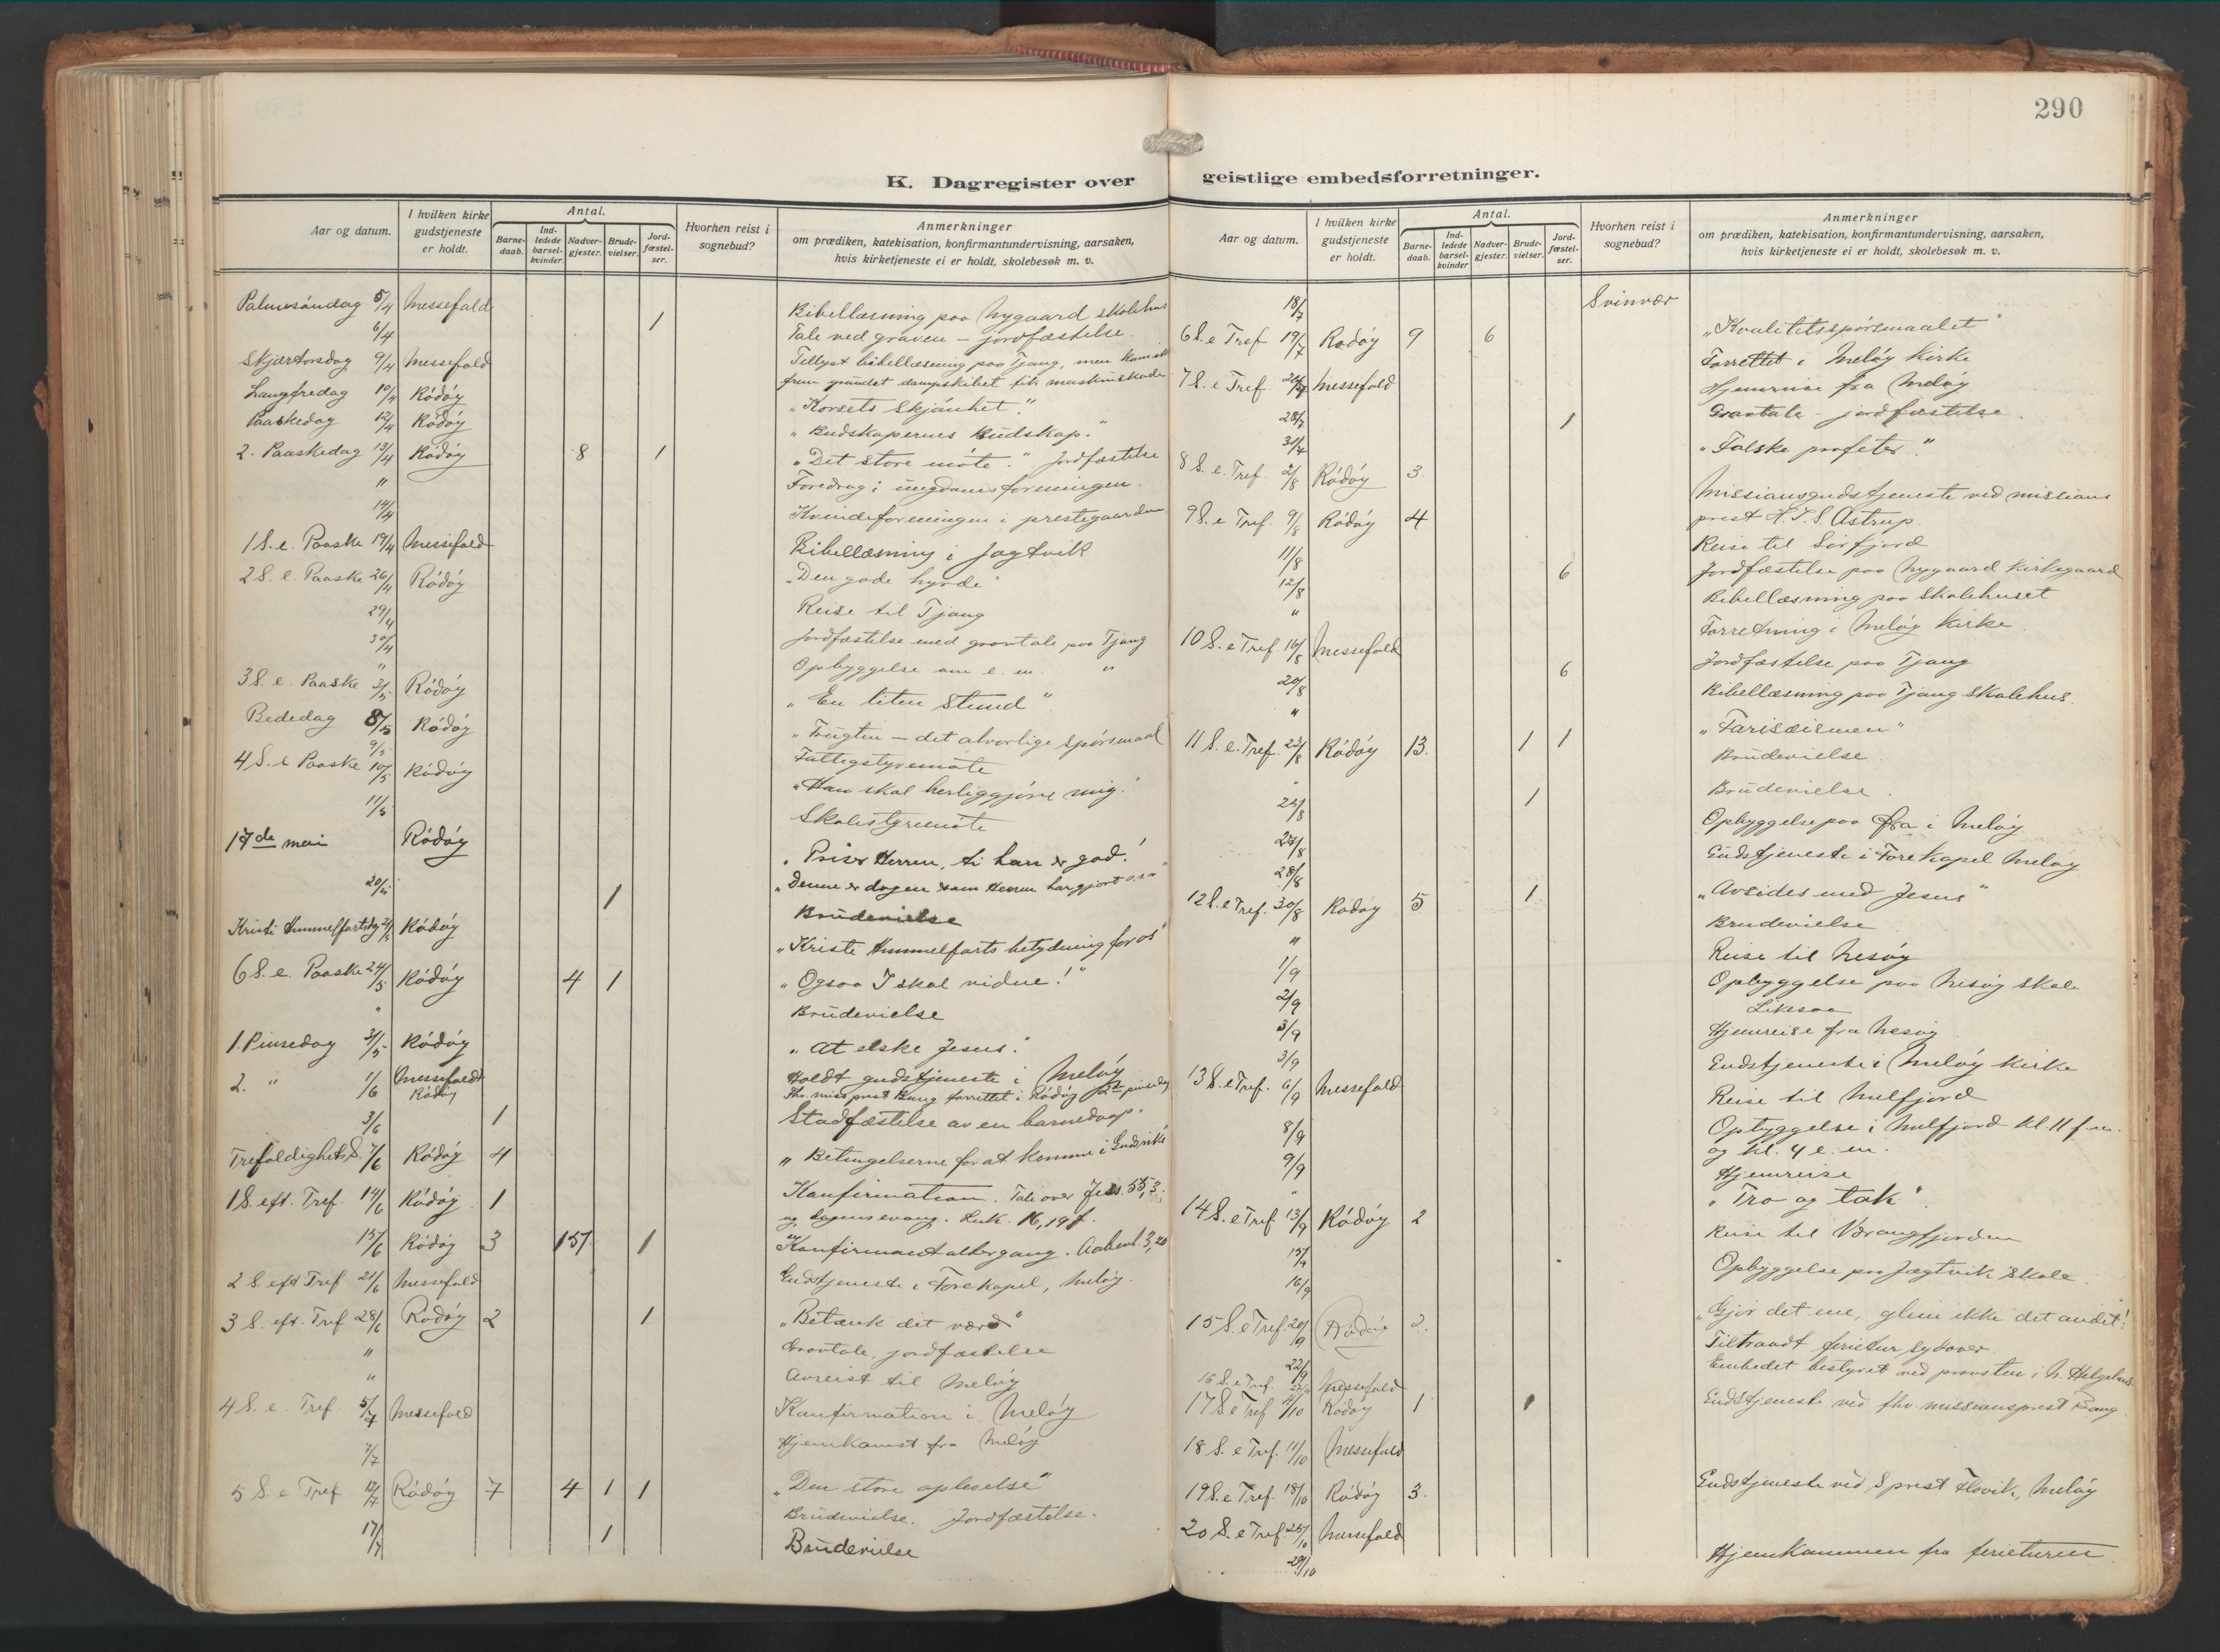 290
K. Dagregister over geistlige embedsforretninger.
Aar og datum. I hvilken kirke gudstjeneste er holdt. Antal. Barnedaab. Indledede barselkvinder. Nadvergjester. Brudevielser. Jordfæstelser. Hvorhen reist i sognebud? Anmerkninger om prædiken, katekisation, konfirmantundervisning, aarsaken, hvis kirketjeneste ei er holdt, skolebesøk m. v.
Palmesöndag 5/4 Messefald Bibellæsning paa Nygaard skolehus
6/4 1 Tale ved graven – jordfæstelse.
Skjærtorsdag 9/4 Messefald Tellyst bibellæsning paa Tjang, men kom ikke
frem grundet dampskibet fik maskinskade
Langfredag 10/4 Rödöy „Korsets skjönhet."
Paaskedag 12/4 Rödöy „Budskapernes Budskap."
2. Paaskedag 13/4 Rödöy 8 1 „Det store möte." Jordfæstelse
" Foredrag i ungdomsforeningen.
14/4 Kvindeforeningen i prestegaarden
1 S. e. Paaske 19/4 Messefald Bibellæsning i Jagtvik
2 S. e. Paaske 26/4 Rödöy „Den gode hyrde"
29/4 Reise til Tjang
30/4 Jordfæstelse med gravtale paa Tjang
" Opbyggelse om e. m. "
3 S. e. Paaske 3/5 Rödöy „En liten stund"
Bededag 8/5 Rödöy „Frugten – det alvorlige spörsmaal
9/5 Fattigstyremöte
4 S. e Paaske 10/5 Rödöy „Han skal herliggjöre mig."
11/5 Skolestyremöte
17de mai Rödöy „Priser Herren, ti han er god!
„Denne er dagen som Herren har gjort o.s.v"
20/5 1 Brudevielse
Kristi Himmelfartsdag 21/5 Rödöy „Kristi Himmelfarts betydning for os"
6 S. e. Paaske 24/5 Rödöy 4 1 „Ogsaa I skal vidne!"
" Brudevielse
1. Pinsedag 31/5 Rödöy „At elske Jesus."
2. " 1/6 Messefald Rödöy Holdt gudstjeneste i Melöy
Fhv. miss.prest Bang forrettet i Rödöy 2den pinsedag
3/6 1 Stadfæstelse av en barnedaap.
Trefoldighets S. 7/6 Rödöy 4 „Betingelserne for at komme i Gudsrike"
1 S. eft. Tref. 14/6 Rödöy 1 Konfirmation. Tale over Jes. 55,3.
og dagens evang. Luk. 16,19 f.
15/6 Rödöy 3 157 1 Konfirmantaltergang. Aabenb. 3,20
2 S. eft Tref 21/6 Messefald Gudstjeneste i Forekapel, Melöy.
3 S. eft. Tref 28/6 Rödöy 2 1 „Betænk dit værd"
" Gravtale, jordfæstelse
" Avreist til Melöy
4 S. e. Tref. 5/7 Messefald Konfirmation i Melöy
7/7 Hjemkomst fra Melöy
5 S. e Tref 12/7 Rödöy 7 4 1 1 „Den store oplevelse"
Brudevielse. Jordfæstelse.
17/7 1 Brudevielse
18/7 Svinvær
6 S. e Tref 19/7 Rödöy 9 6 „Kvalitetsspörsmaalet"
7 S. e Tref. 26/7 Messefald Forrettet i Melöy kirke
28/7 Hjemreise fra Melöy
31/7 1 Gravtale – jordfæstelse.
8 S. e. Tref. 2/8 Rödöy 3 „Falske profeter".
9 S. e Tref. 9/8 Rödöy 4 Missionsgudstjeneste ved missions
prest H. J. S. Astrup.
11/8 Reise til Sörfjord
12/8 6 Jordfæstelse paa Nygaard kirkegaard
" Bibellæsning paa skolehuset
10 S. e Tref 16/8 Messefald Forretning i Melöy Kirke
20/8 6 Jordfæstelse paa Tjang
" Bibellæsning paa Tjang skolehus.
11 S. e. Tref. 23/8 Rödöy 13. 1 1 „Farisæismen"
" Brudevielse
25/8 1 Brudevielse.
27/8 Opbyggelse paa i Melöy
28/8 Gudstjeneste i Forekapel Melöy
12 S. e Tref. 30/8 Rödöy 5 1 „Avsides med Jesus"
" Brudevielse
1/9 Reise til Nesöy
2/9 Opbyggelse paa Nesöy skole
Likesaa
3/9 Hjemreise fra Nesöy
3/9
13 S. e Tref. 6/9 Messefald Gudstjeneste i Melöy kirke
8/9 Reise til Melfjord
9/9 Opbyggelse i Melfjord kl. 11 f. m.
og kl. 4 e. m.
" Hjemreise
14 S. e Tref 13/9 Rödöy 2 „Tro og tak".
15/9 Reise til Værangfjorden
16/9 Opbyggelse paa Jægtvik skole.
15 S. e Tref. 20/9 Rödöy 2. „Gjör det ene, glem ikke det andet!"
22/9 Tiltraadt ferietur sydover.
16 S. e Tref 27/9 Messefald Embedet bestyret ved provsten i N. Helgeland
17 S. e Tref 4/10 Rödöy 1 1 Gudstjeneste ved fhv. missionsprest Bang
18 S. e Tref. 11/10 Messefald
19 S. e Tref. 18/10 Rödöy 3. Gudstjeneste ved S prest Flovik, Melöy
20 S. e Tref. 25/10 Messefald
29/10 Hjemkommen fra ferieturen